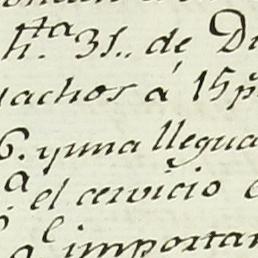 hta 31.. de D
achos á 15 p
6. y una llegua
a el cervicio
l importan